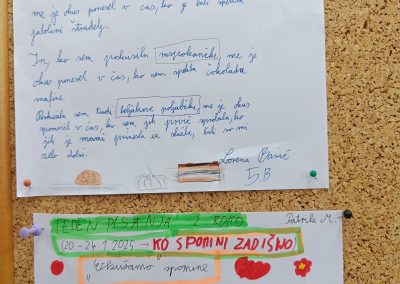 me je okus ponesel v čas, ko je bili spekla
jabolčni štrudelj.
In, ko sem poskusila razpokančke, me je
okus ponesel v čas, ko sem spekla čokoladne
mafine.
Poskusila sem tudi boljakove poljubčke, me je okus
spomnil v čas, ko sem jih prvič
jih je mami prinesla iz službe, bili so mi
zelo dobri.
Lorena Barić
5.B
TEDEN PISANJA Z ROKO
Patrik M.
(20-24.1.2025 → KO SPOMINI ZADIŠIJO)
"Okušamo" spomine